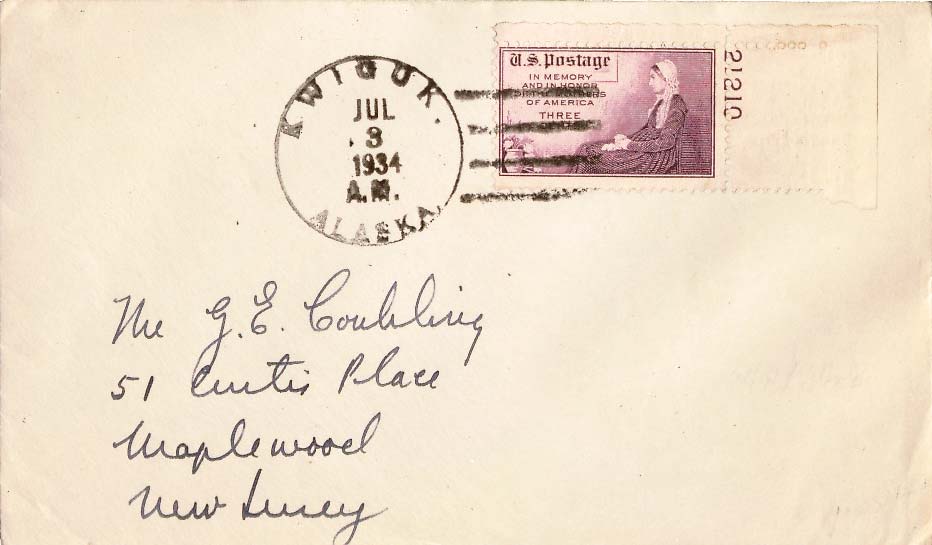 KWIGUK.
JUL
3
1934
A.M.
ALASKA.
U.S. Postage
IN MEMORY
AND IN HONOR
OF THE MOTHERS
OF AMERICA
THREE
21210
Mr G. E. Conkling
51 Curtis Place
Maplewood
New Jersey